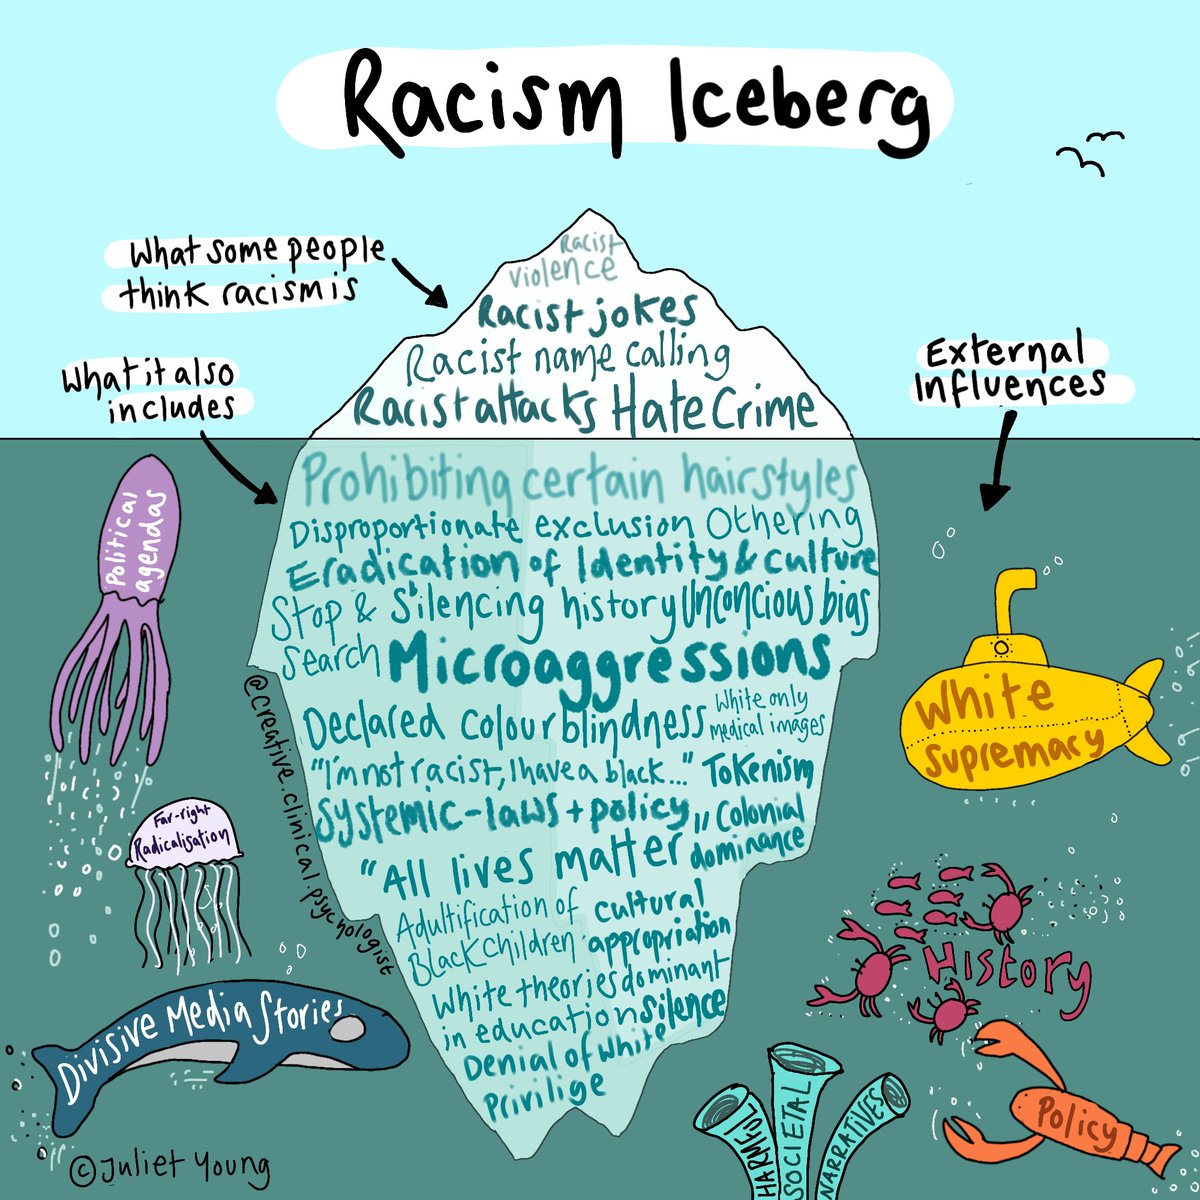 Racism Iceberg
What some people
think racism is
What it also
includes
External
Influences
Racist
violence
Racist jokes
Racist name calling
Racist attacks Hate Crime
Prohibiting certain hairstyles
Disproportionate exclusion Othering
Eradication of Identity & culture
Stop &
Search
Silencing history Unconcious bias
Microaggressions
Declared colour blindness
White only
medical images
"I'm not racist, I have a black..." Tokenism
Systemic-laws + policy
"All lives matter"
Colonial
dominance
Adultification of
Black children
cultural
appropriation
White theories dominant
in education
silence
Denial of white
privilige
@creative.clinical.psychologist
Political
agendas
Far-right
Radicalisation
Divisive Media Stories
White
Supremacy
History
Policy
HARMFUL
SOCIETAL
NARRATIVES
© Juliet Young